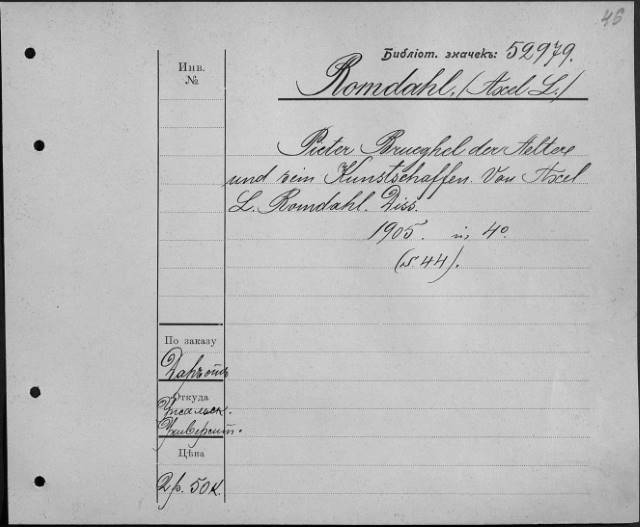 46
Библіот. значекъ: 52979.
Инв.
№
Romdahl, (Axel L.)
Pieter Brueghel der Aeltere
und sein Kunstschaffen. Von Axel
L. Romdahl. Diss.
1905. in 4º
(S. 44).
По заказу
Даръ отъ
Откуда
Упсальск.
Университ.
Цѣна
2 р. 50 к.